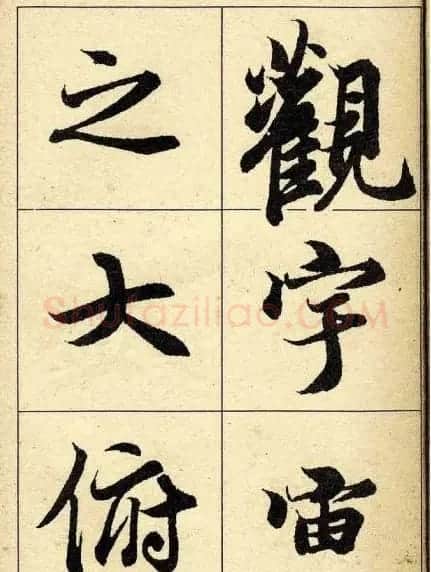 觀宇宙
之大俯
Shufaziliao.COM